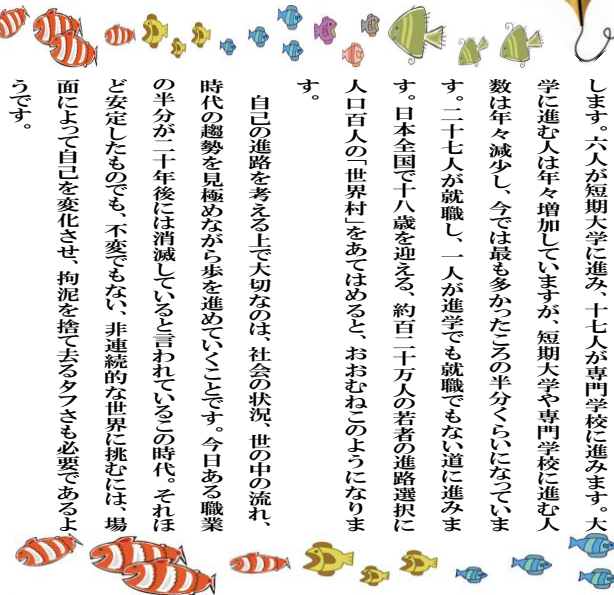 します。六人が短期大学に進み、十七人が専門学校に進みます。大
学に進む人は年々増加していますが、短期大学や専門学校に進む人
数は年々減少し、今では最も多かったころの半分くらいになっていま
す。二十七人が就職し、一人が進学でも就職でもない道に進みま
す。日本全国で十八歳を迎える、約百二十万人の若者の進路選択に
人口百人の「世界村」をあてはめると、おおむねこのようになりま
す。
自己の進路を考える上で大切なのは、社会の状況、世の中の流れ、
時代の趨勢を見極めながら歩を進めていくことです。今日ある職業
の半分が二十年後には消滅していると言われているこの時代。それほ
ど安定したものでも、不変でもない、非連続的な世界に挑むには、場
面によって自己を変化させ、拘泥を捨て去るタフさも必要であるよ
うです。